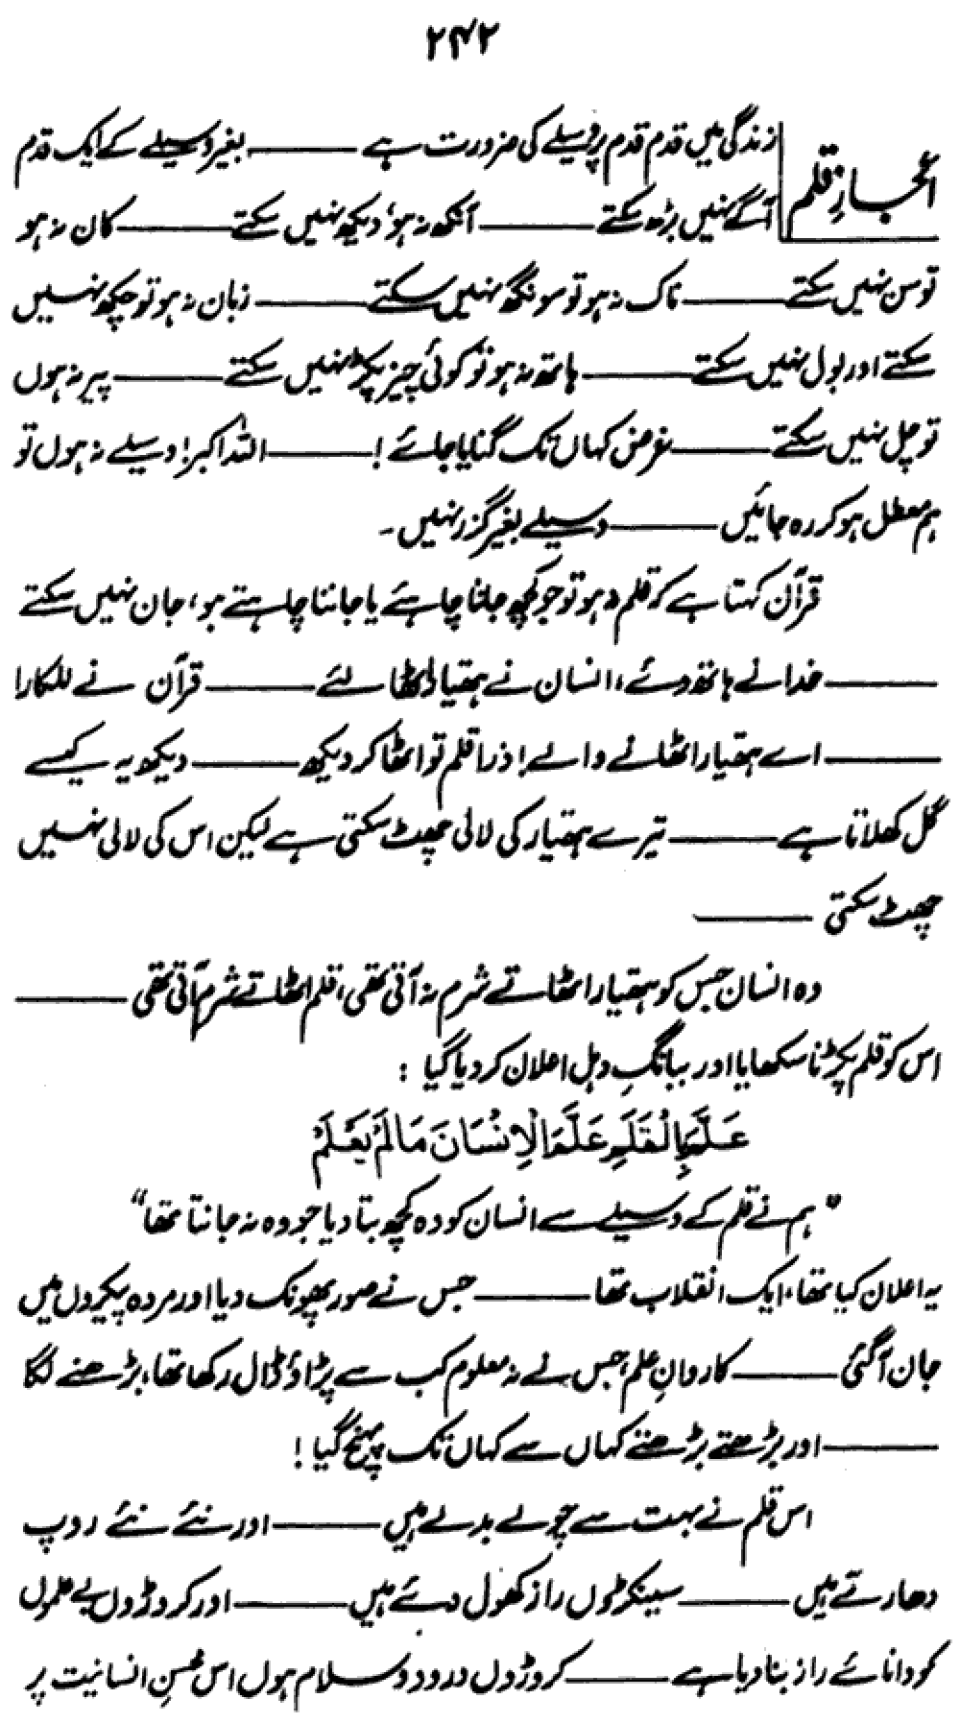 ۲۴۲
اعجازِ قلم
زندگی میں قدم قدم پر وسیلے کی ضرورت ہے ——— بغیر وسیلے کے ایک قدم
آگے نہیں بڑھ سکتے ——— آنکھ نہ ہو، دیکھ نہیں سکتے ——— کان نہ ہو
تو سن نہیں سکتے ——— ناک نہ ہو تو سونگھ نہیں سکتے ——— زبان نہ ہو تو چکھ نہیں
سکتے اور بول نہیں سکتے ——— ہاتھ نہ ہو تو کوئی چیز پکڑ نہیں سکتے ——— پیر نہ ہوں
تو چل نہیں سکتے ——— غرض کہاں تک گنایا جائے ! ——— اللہ اکبر! وسیلے نہ ہوں تو
ہم معطل ہو کر رہ جائیں ——— وسیلے بغیر گزر نہیں ۔
قرآن کہتا ہے کہ قلم نہ ہو تو جو کچھ جاننا چاہئے یا جاننا چاہتے ہو، جان نہیں سکتے
——— خدا نے ہاتھ دئے، انسان نے ہتھیار اٹھا لئے ——— قرآن نے للکارا
——— اے ہتھیار اٹھانے والے! ذرا قلم تو اٹھا کر دیکھ ——— دیکھ یہ کیسے
گل کھلاتا ہے ——— تیرے ہتھیار کی لالی چھٹ سکتی ہے لیکن اس کی لالی نہیں
چھٹ سکتی ———
وہ انسان جس کو ہتھیار اٹھاتے شرم نہ آتی تھی، قلم اٹھاتے شرم آتی تھی ———
اس کو قلم پکڑنا سکھایا اور ببانگِ دہل اعلان کر دیا گیا :
عَلَّمَ بِالْقَلَمِ عَلَّمَ الْاِنْسَانَ مَا لَمْ یَعْلَمْ
”ہم نے قلم کے وسیلے سے انسان کو وہ کچھ بتا دیا جو وہ نہ جانتا تھا“
یہ اعلان کیا تھا، ایک انقلاب تھا ——— جس نے صور پھونک دیا اور مردہ پیکروں میں
جان آ گئی ——— کاروانِ علم، جس نے نہ معلوم کب سے پڑاؤ ڈال رکھا تھا، بڑھنے لگا
——— اور بڑھتے بڑھتے کہاں سے کہاں تک پہنچ گیا !
اس قلم نے بہت سے چولے بدلے ہیں ——— اور نئے نئے روپ
دھارتے ہیں ——— سینکڑوں راز کھول دیئے ہیں ——— اور کروڑوں بے علموں
کو دانائے راز بنا دیا ہے ——— کروڑوں درود و سلام ہوں اس محسنِ انسانیت پر